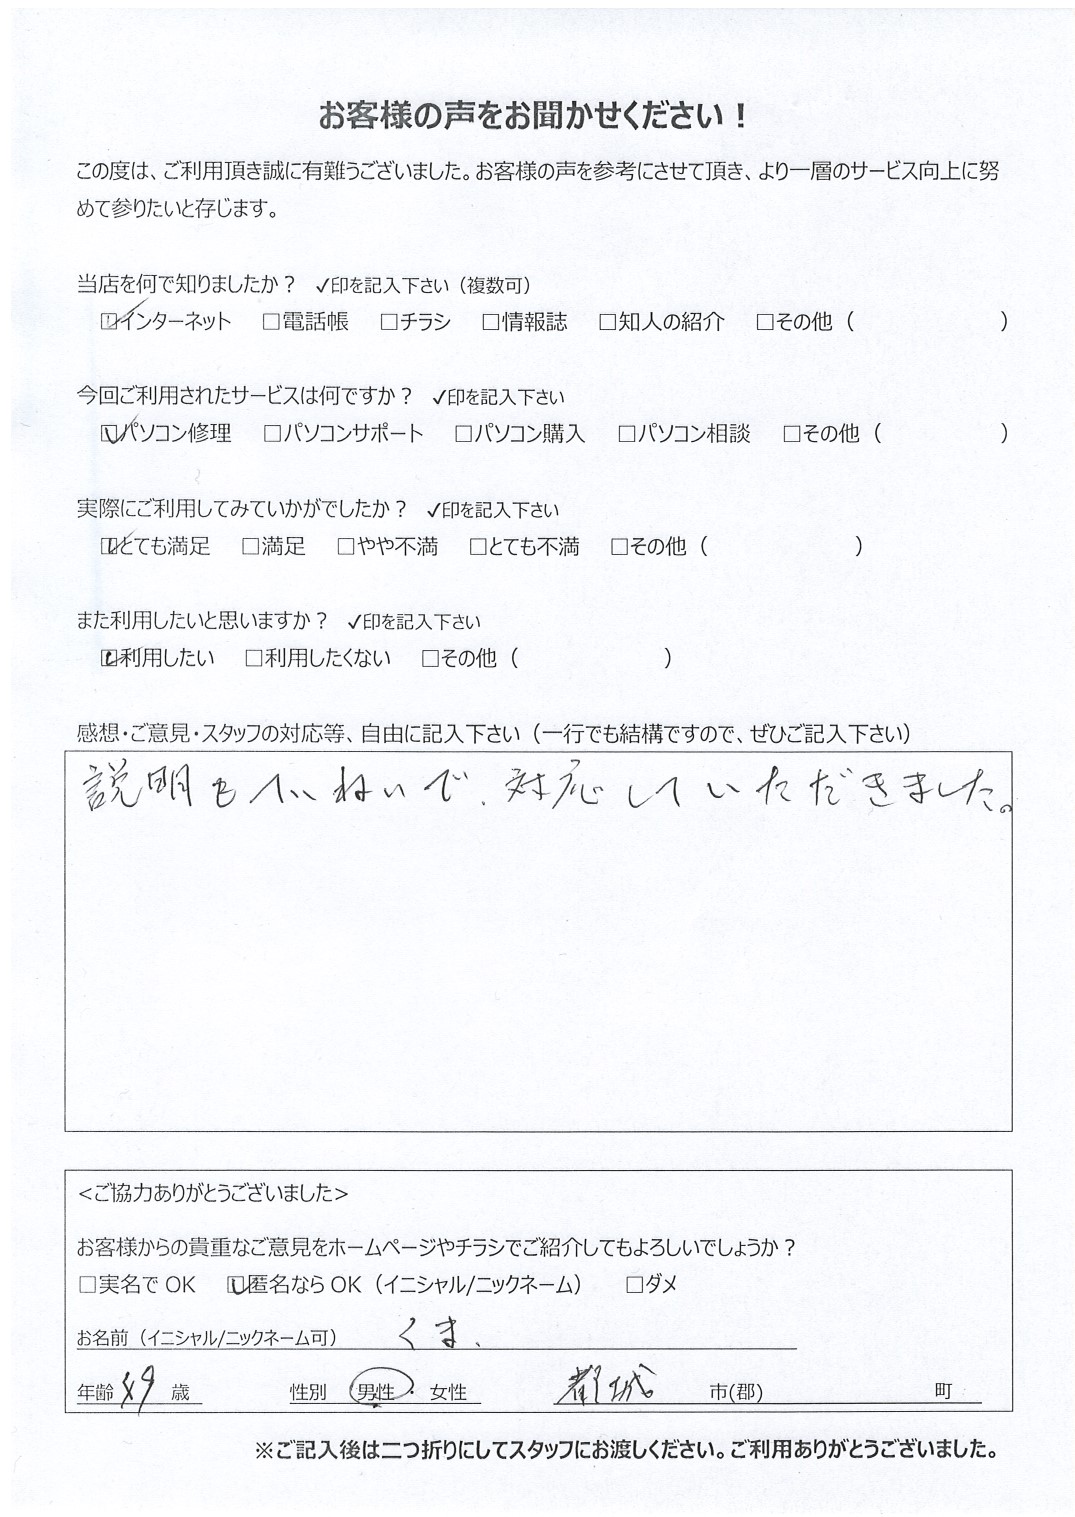 お客様の声をお聞かせください！
この度は、ご利用頂き誠に有難うございました。お客様の声を参考にさせて頂き、より一層のサービス向上に努
めて参りたいと存じます。
当店を何で知りましたか？ ✓印を記入下さい（複数可）
☑インターネット □電話帳 □チラシ □情報誌 □知人の紹介 □その他（ ）
今回ご利用されたサービスは何ですか？ ✓印を記入下さい
☑パソコン修理 □パソコンサポート □パソコン購入 □パソコン相談 □その他（ ）
実際にご利用してみていかがでしたか？ ✓印を記入下さい
☑とても満足 □満足 □やや不満 □とても不満 □その他（ ）
また利用したいと思いますか？ ✓印を記入下さい
☑利用したい □利用したくない □その他（ ）
感想・ご意見・スタッフの対応等、自由に記入下さい（一行でも結構ですので、ぜひご記入下さい）
説明もていねいで、対応していただきました。
<ご協力ありがとうございました>
お客様からの貴重なご意見をホームページやチラシでご紹介してもよろしいでしょうか？
□実名で OK ☑匿名なら OK（イニシャル/ニックネーム） □ダメ
お名前（イニシャル/ニックネーム可） くま、
年齢 49 歳 性別 男性・女性 都城 市(郡) 町
※ご記入後は二つ折りにしてスタッフにお渡しください。ご利用ありがとうございました。